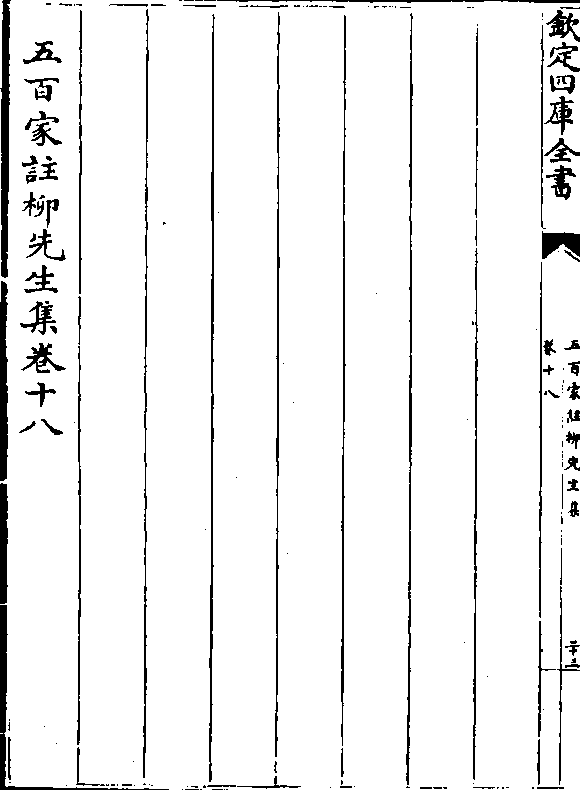 欽定四庫全書
五百家註柳先生集
卷十八
二十三
五百家註柳先生集卷十八